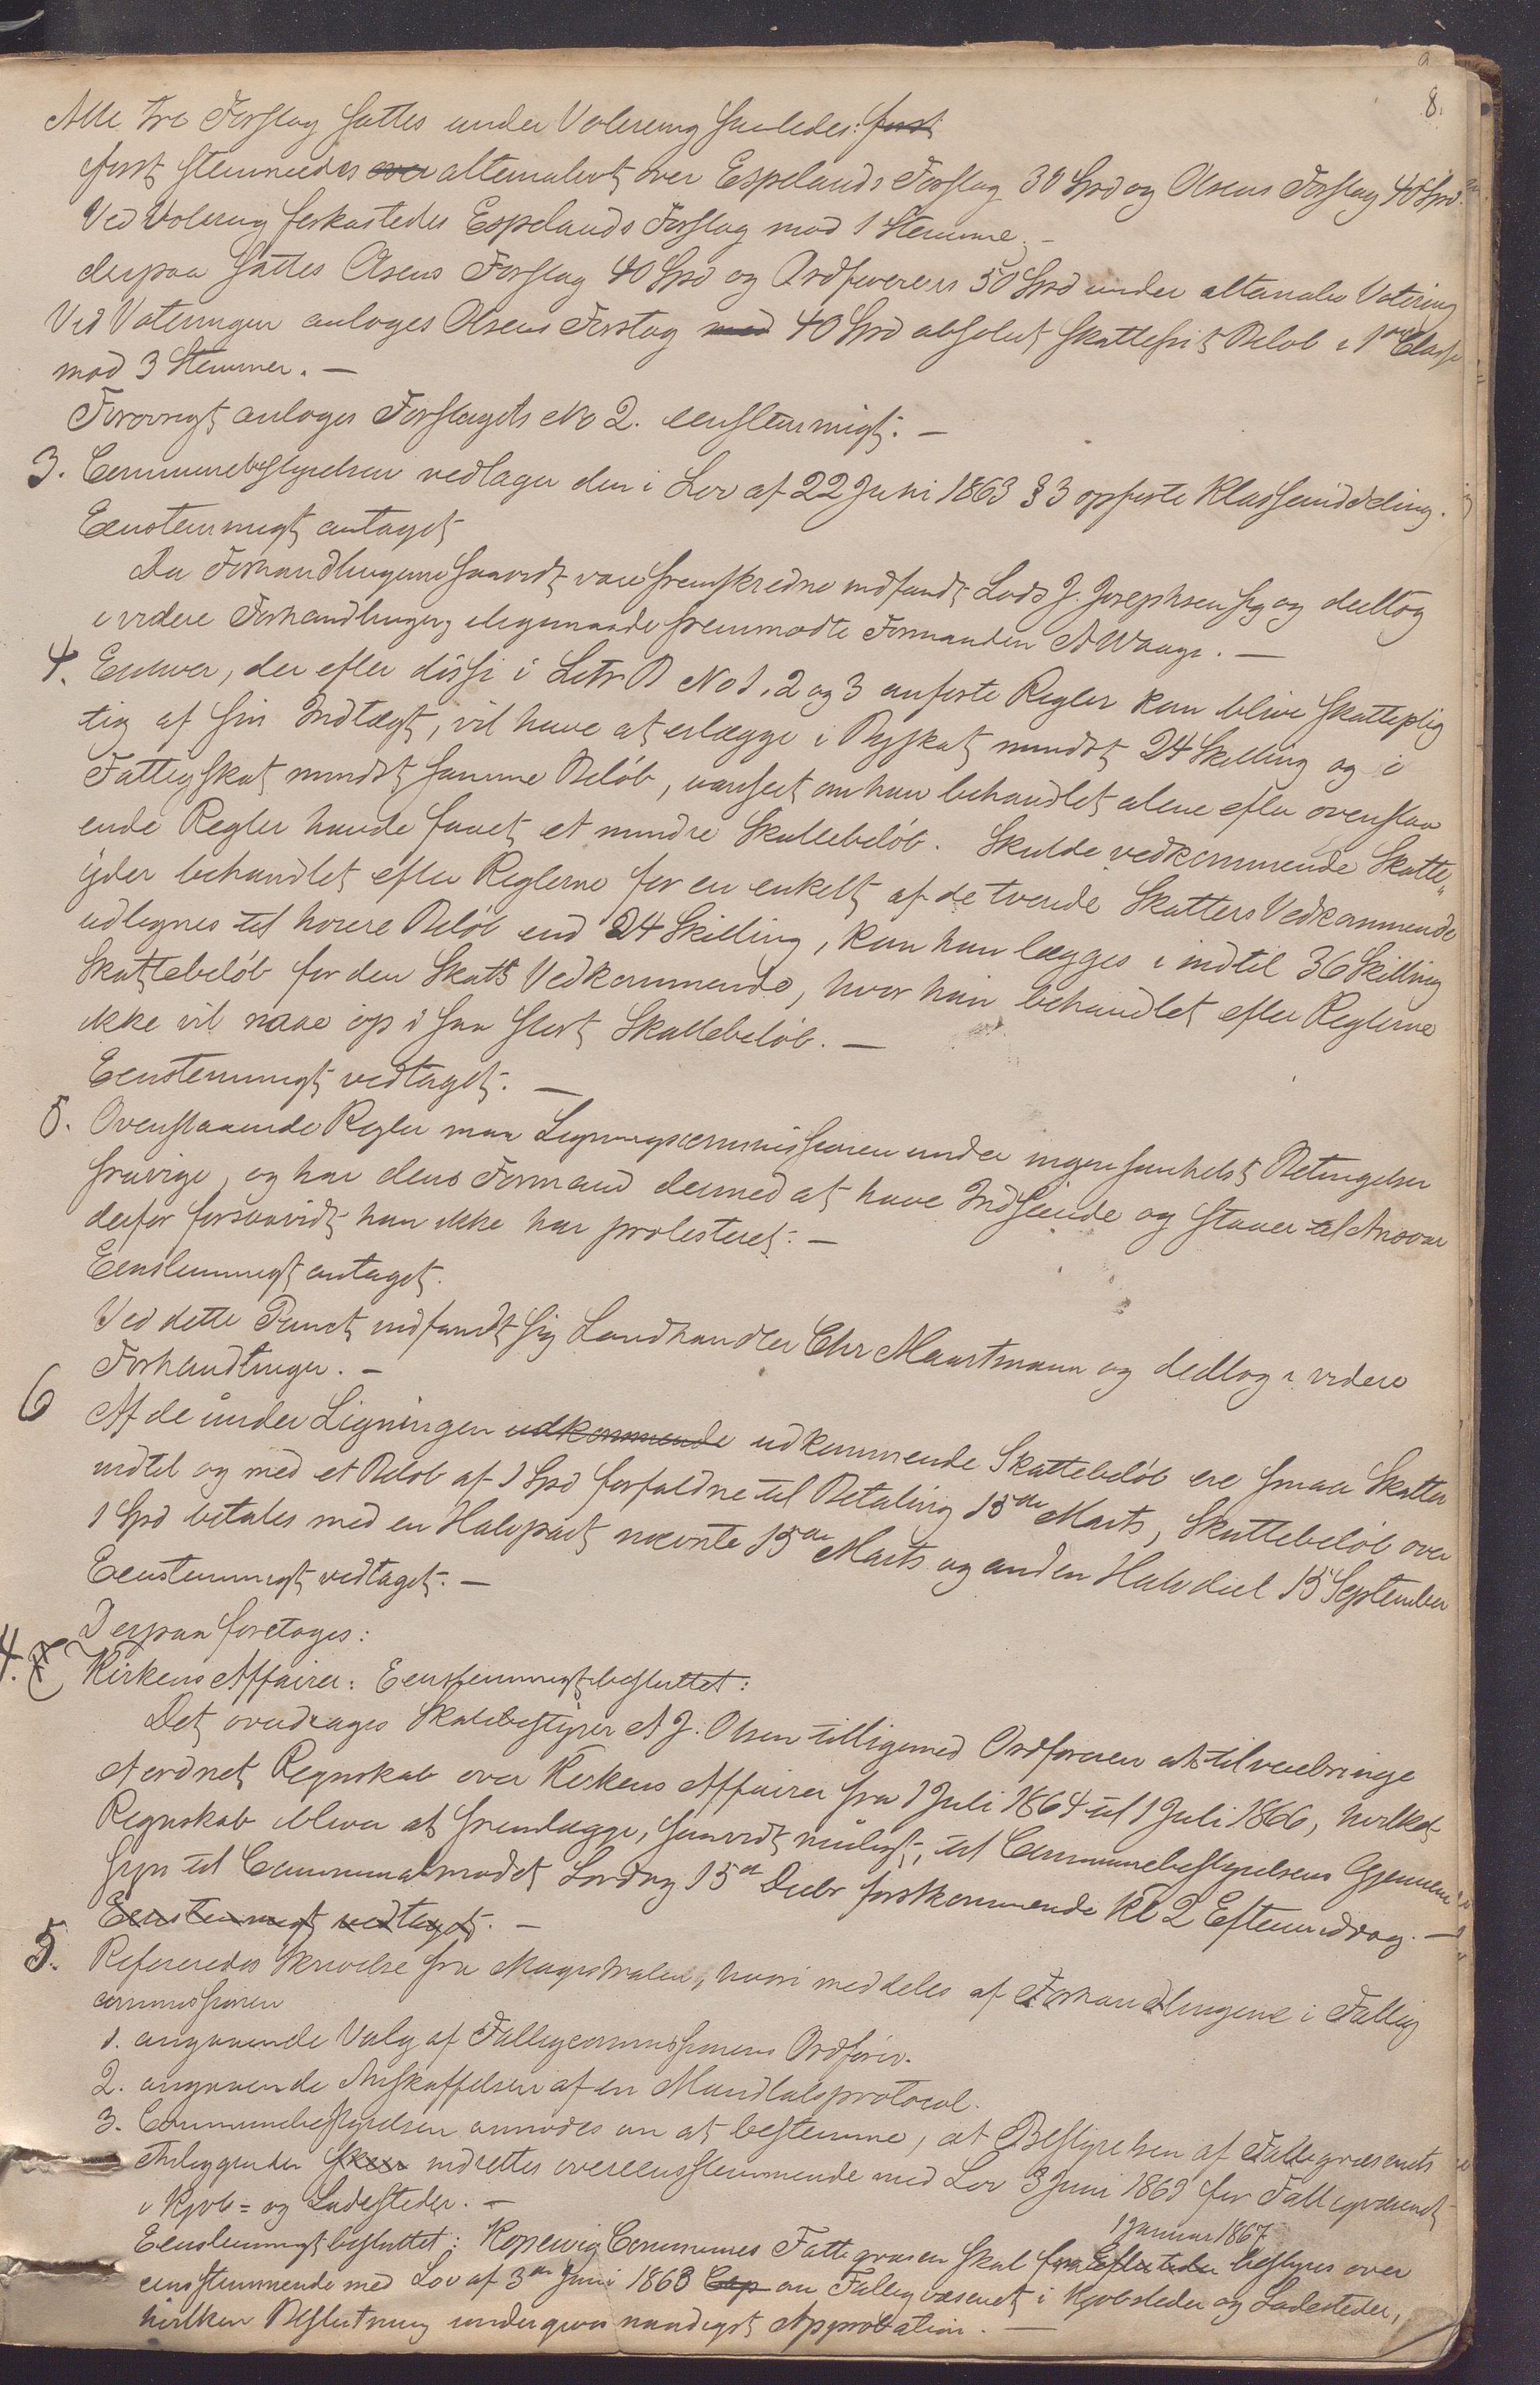 8.
Alle tre Forslag sattes under Votering saaledes: først
først stemmedes over alternativt over Espelands Forslag 30 Spd og Olsens Forslag 40 Spd.
Ved Votering forkastedes Espelands Forslag mod 1 Stemme. –
derpaa sattes Olsens Forslag 40 Spd og Ordførerens 50 Spd under alternativ Votering
Ved Voteringen antoges Olsens Forslag med 40 Spd absolut skattefrit Beløb i 1ste Classe
mod 3 Stemmer. –
Forøvrigt antoges Forslagets No 2. eenstemmigt. –
3. Communebestyrelsen vedtager den i Lov af 22 Juni 1863 § 3 opførte Klasseinddeling.
Eenstemmigt antaget
Da Forhandlingerne saavidt vare fremskredne indfandt Lods J. Josephsen sig og deeltog
i videre Forhandlinger, ligemaade fremmødte Formanden A Waage. –
4. Enhver, der efter disse i Litr B No 1, 2 og 3 anførte Regler kan blive skatteplig
tig af sin Indtægt, vil have at erlægge i Byskat mindst 24 Skilling og i
Fattigskat mindst samme Beløb, uanseet om han behandlet alene efter ovenstaa
ende Regler havde faaet et mindre Skattebeløb. Skulde vedkommende Skatte„
yder behandlet efter Reglerne for en enkelt af de tvende Skatters Vedkommende
udlignes til høiere Beløb end 24 Skilling, kan han lægges i indtil 36 Skilling
Skattebeløb for den Skats Vedkommende, hvor han behandlet efter Reglerne
ikke vil naae op i saa stort Skattebeløb. –
Eenstemmigt vedtaget. –
5. Ovenstaaende Regler maa Ligningscommissionen under ingen somhelst Betingelser
fravige, og har dens Formand dermed at have Indseende og staaer til Ansvar
derfor forsaavidt han ikke har protesteret. –
Eenstemmigt antaget.
Ved dette Punct indfandt sig Landhandler Chr Maartmann og deeltog i videre
Forhandlinger. –
6 Af de under Ligningen udkommende udkommende Skattebeløb ere smaa Skatter
indtil og med et Beløb af 1 Spd forfaldne til Betaling 15de Marts, Skattebeløb over
1 Spd betales med en Halvpart nævnte 15de Marts og anden Halvdeel 15 September
Eenstemmigt vedtaget. –
Derpaa foretoges:
4. Kirkens Affairer: Eenstemmigt besluttet:
Det overdrages Skolebestyrer A J. Olsen tilligemed Ordføreren at tilveiebringe
et ordnet Regnskab over Kirkens Affairer fra 1 Juli 1864 til 1 Juli 1866, hvilket
Regnskab bliver at fremlægge, saavidt muligt, til Communebestyrelsens Gjennem
syn til Communalmødet Lørdag 15de Decbr førstkommende Kl 2 Eftermiddag. –
Eenstemmigt vedtaget. –
5. Refereredes Skrivelse fra Magistraten, hvori meddeles af Forhandlingerne i Fattig
commissionen
1. angaaende Valg af Fattigcommissionens Ordfører.
2. angaaende Anskaffelsen af en Mandtalsprotocol.
3. Communebestyrelsen anmodes om at bestemme, at Bestyrelsen af Fattigvæsenets
Anliggender skeer indrettes overeensstemmende med Lov 3 Juni 1863 for Fattigvæsenet
i Kjøb= og Ladesteder. –
1 Januar 1867
Eenstemmigt besluttet: Kopervig Communes Fattigvæsen skal fra bestyres over
eensstemmende med Lov af 3die Juni 1863 Cap om Fattigvæsenet i Kjøbsteder og Ladesteder,
hvilken Beslutning undergives naadigst Approbation. –